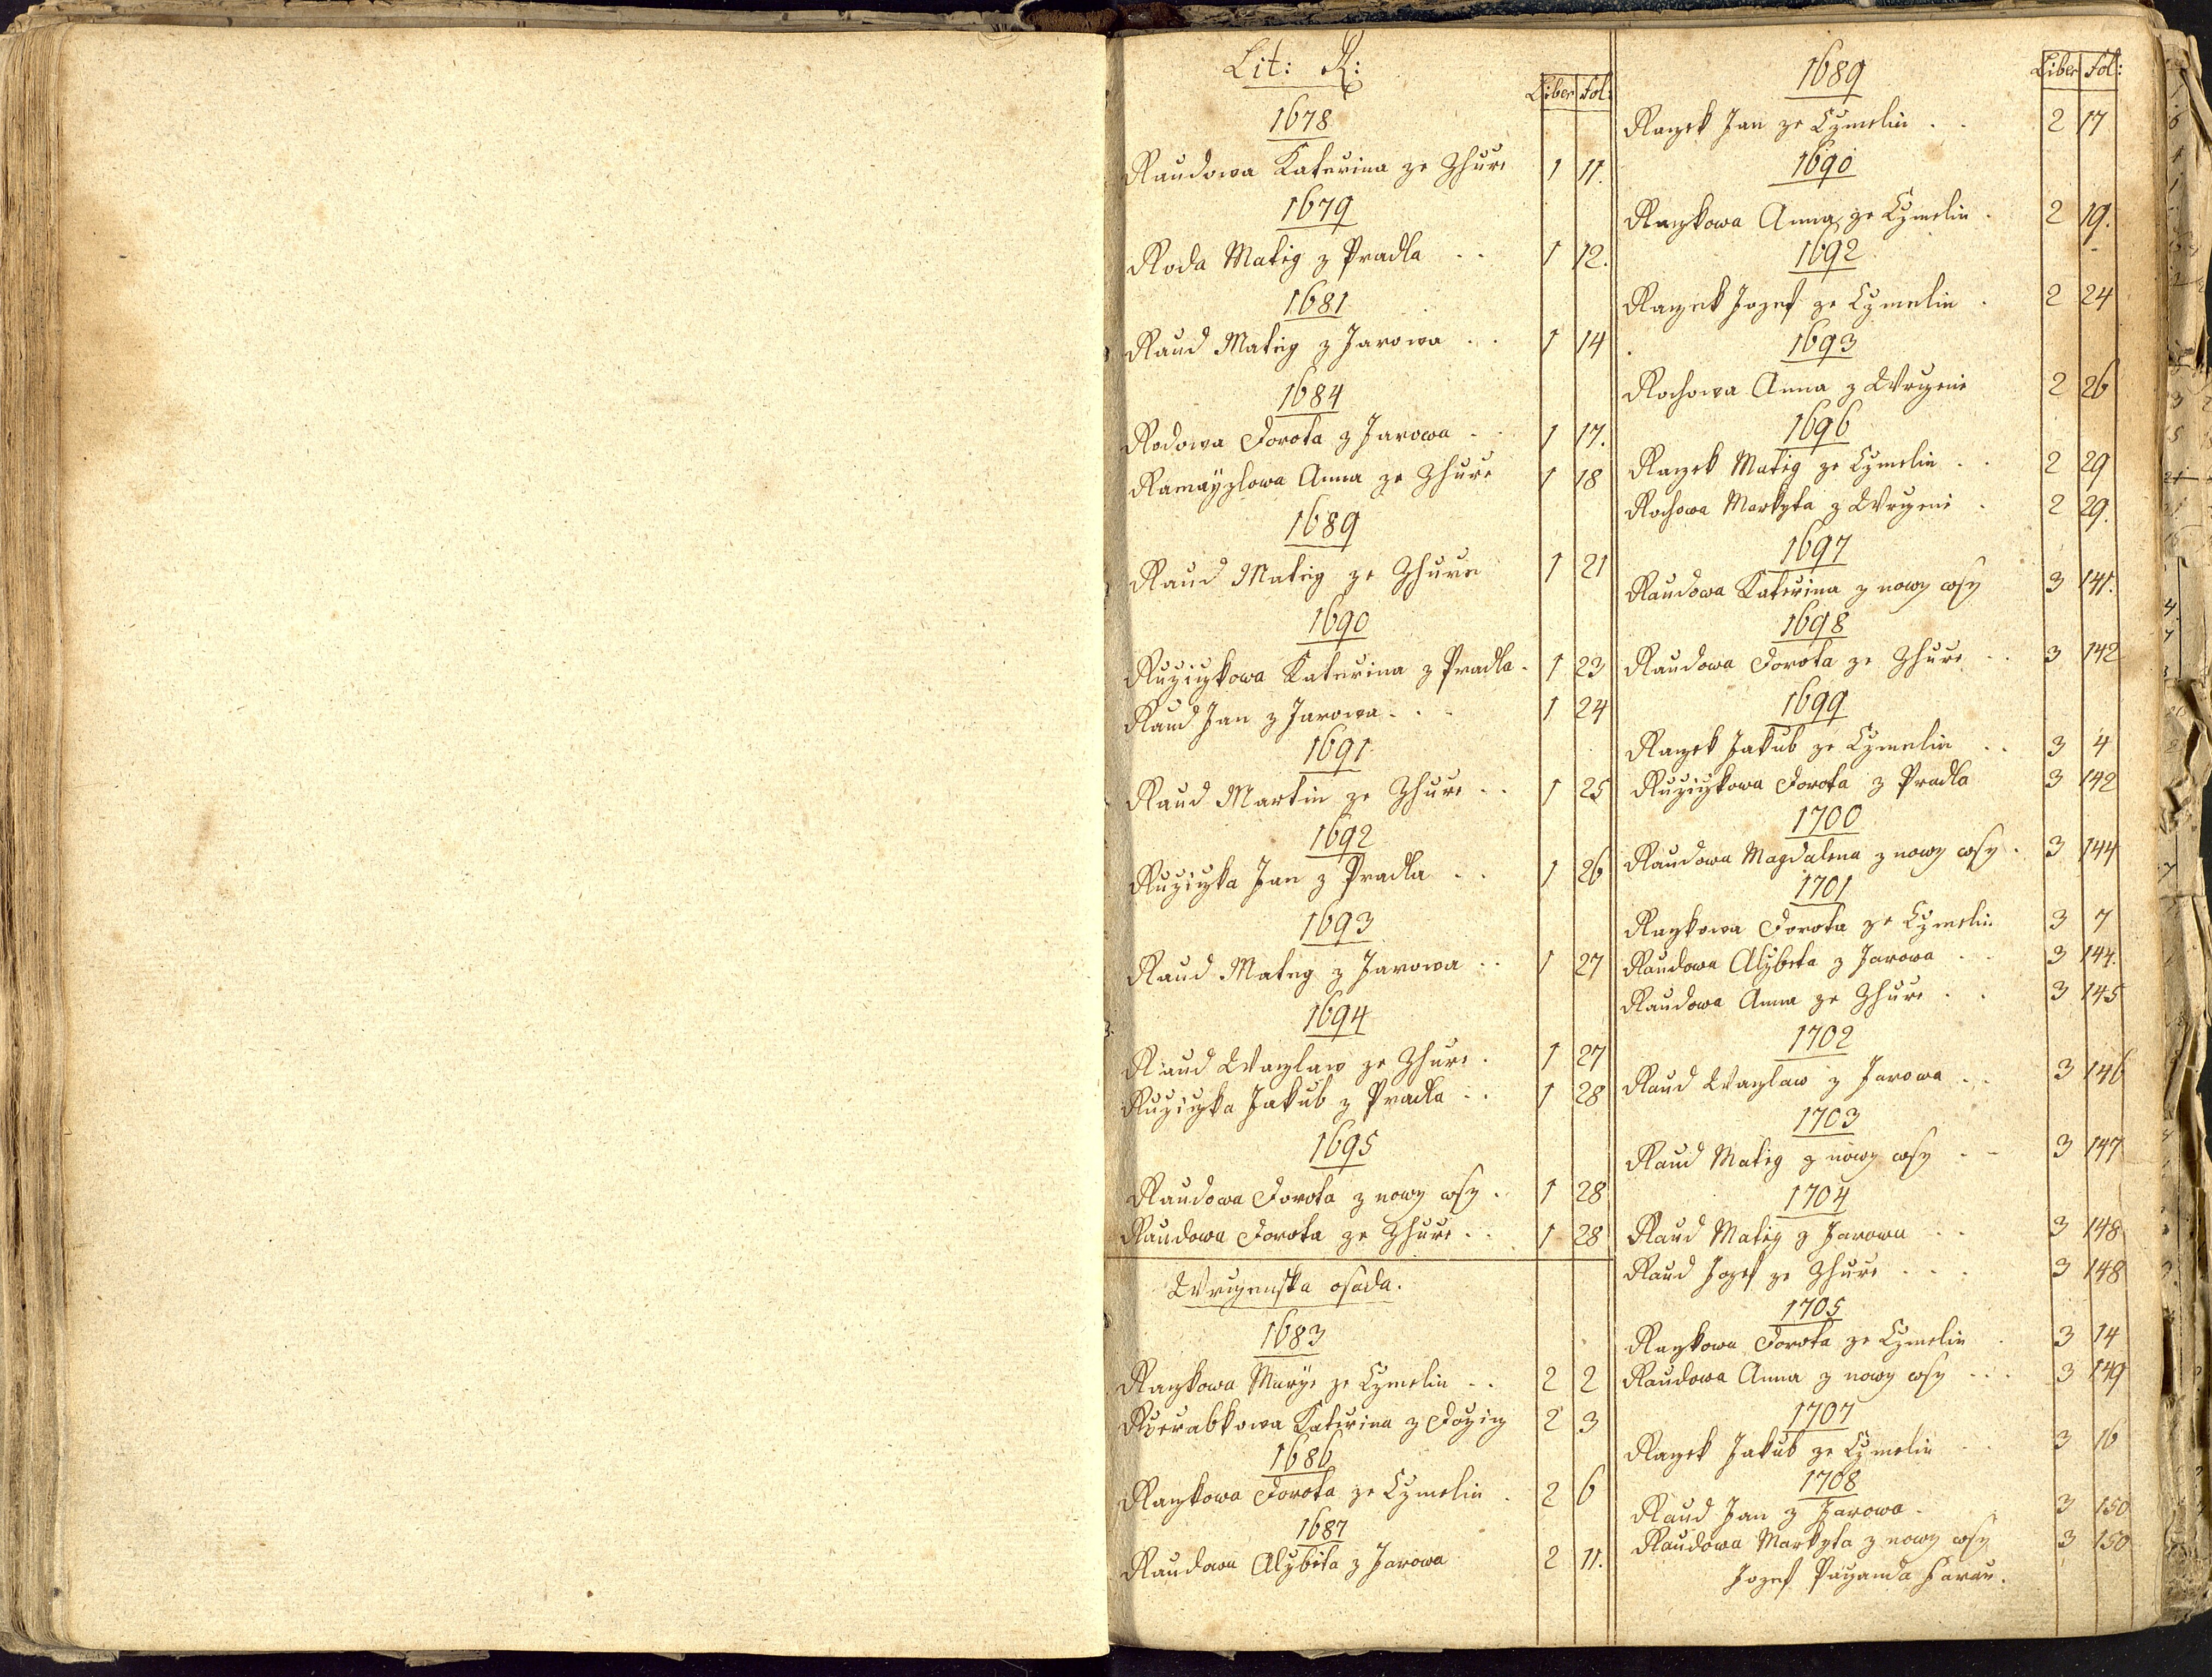 Lit: R:
Liber Fol:
1678
Raudowa Katerina ze Zhurе 1 11.
1679
Roda Matieg z Pradla . . 1 12.
1681
Raud Matieg z Jarowa . . 1 14
1684
Rodowa Dorota z Jarowa . . 1 17.
Anna ze Zhurе 1 18
1689
Raud Matieg ze Zhurе 1 21
1690
Ruziczkowa Katerina z Pradla . 1 23
Raud Jan z Jarowa . . . 1 24
1691
Raud Martin ze Zhurе . . 1 25
1692
Ruziczka Jan z Pradla . . 1 26
1693
Raud Mateg z Jarowa . . 1 27
1694
Raud Waczlaw ze Zhurе . 1 27
Ruziczka Jakub z Pradla . . 1 28
1695
Raudowa Dorota z nowy wsy . 1 28
Raudowa Dorota ze Zhurе . . 1 28
Wrczenska osada.
1683
Raczkowa Marye ze Czmelin . . 2 2
Katerina z 2 3
1686
Raczkowa Dorota ze Czmelin . 2 6
1687
Raudowa Alzbita z Jarowa 2 11.
1689
Liber Fol:
Raczek Jan ze Czmelin . . 2 17
1690
Raczkowa Anna ze Czmelin . 2 19.
1692
Raczek Jozef ze Czmelin . 2 24
1693
Rochowa Anna z Wrczenie 2 26
1696
Raczek Matieg ze Czmelin . . 2 29
Rochowa Markyta z Wrczenie . 2 29.
1697
Raudowa Katerina z nowy wsy 3 141.
1698
Raudowa Dorota ze Zhurе . . 3 142
1699
Raczek Jakub ze Czmelin . . 3 4
Ruziczkowa Dorota z Pradla 3 142
1700
Raudowa Magdalena z nowy wsy . 3 144
1701
Raczkowa Dorota ze Czmelin 3 7
Raudowa Alzbeta z Jarowa . . 3 144.
Raudowa Anna ze Zhurе . . 3 145
1702
Raud Waczlaw z Jarowa . . 3 146
1703
Raud Matieg z nowy wsy . . 3 147
1704
Raud Matieg z Jarowa . . 3 148
Raud Jozef ze Zhurе . . . 3 148
1705
Raczkowa Dorota ze Czmelin . 3 14
Raudowa Anna z nowy wsy . . . 3 149
1707
Raczek Jakub ze Czmelin . . 3 16
1708
Raud Jan z Jarowa . 3 150
Raudowa Markyta z nowy wsy 3 150
Jozef